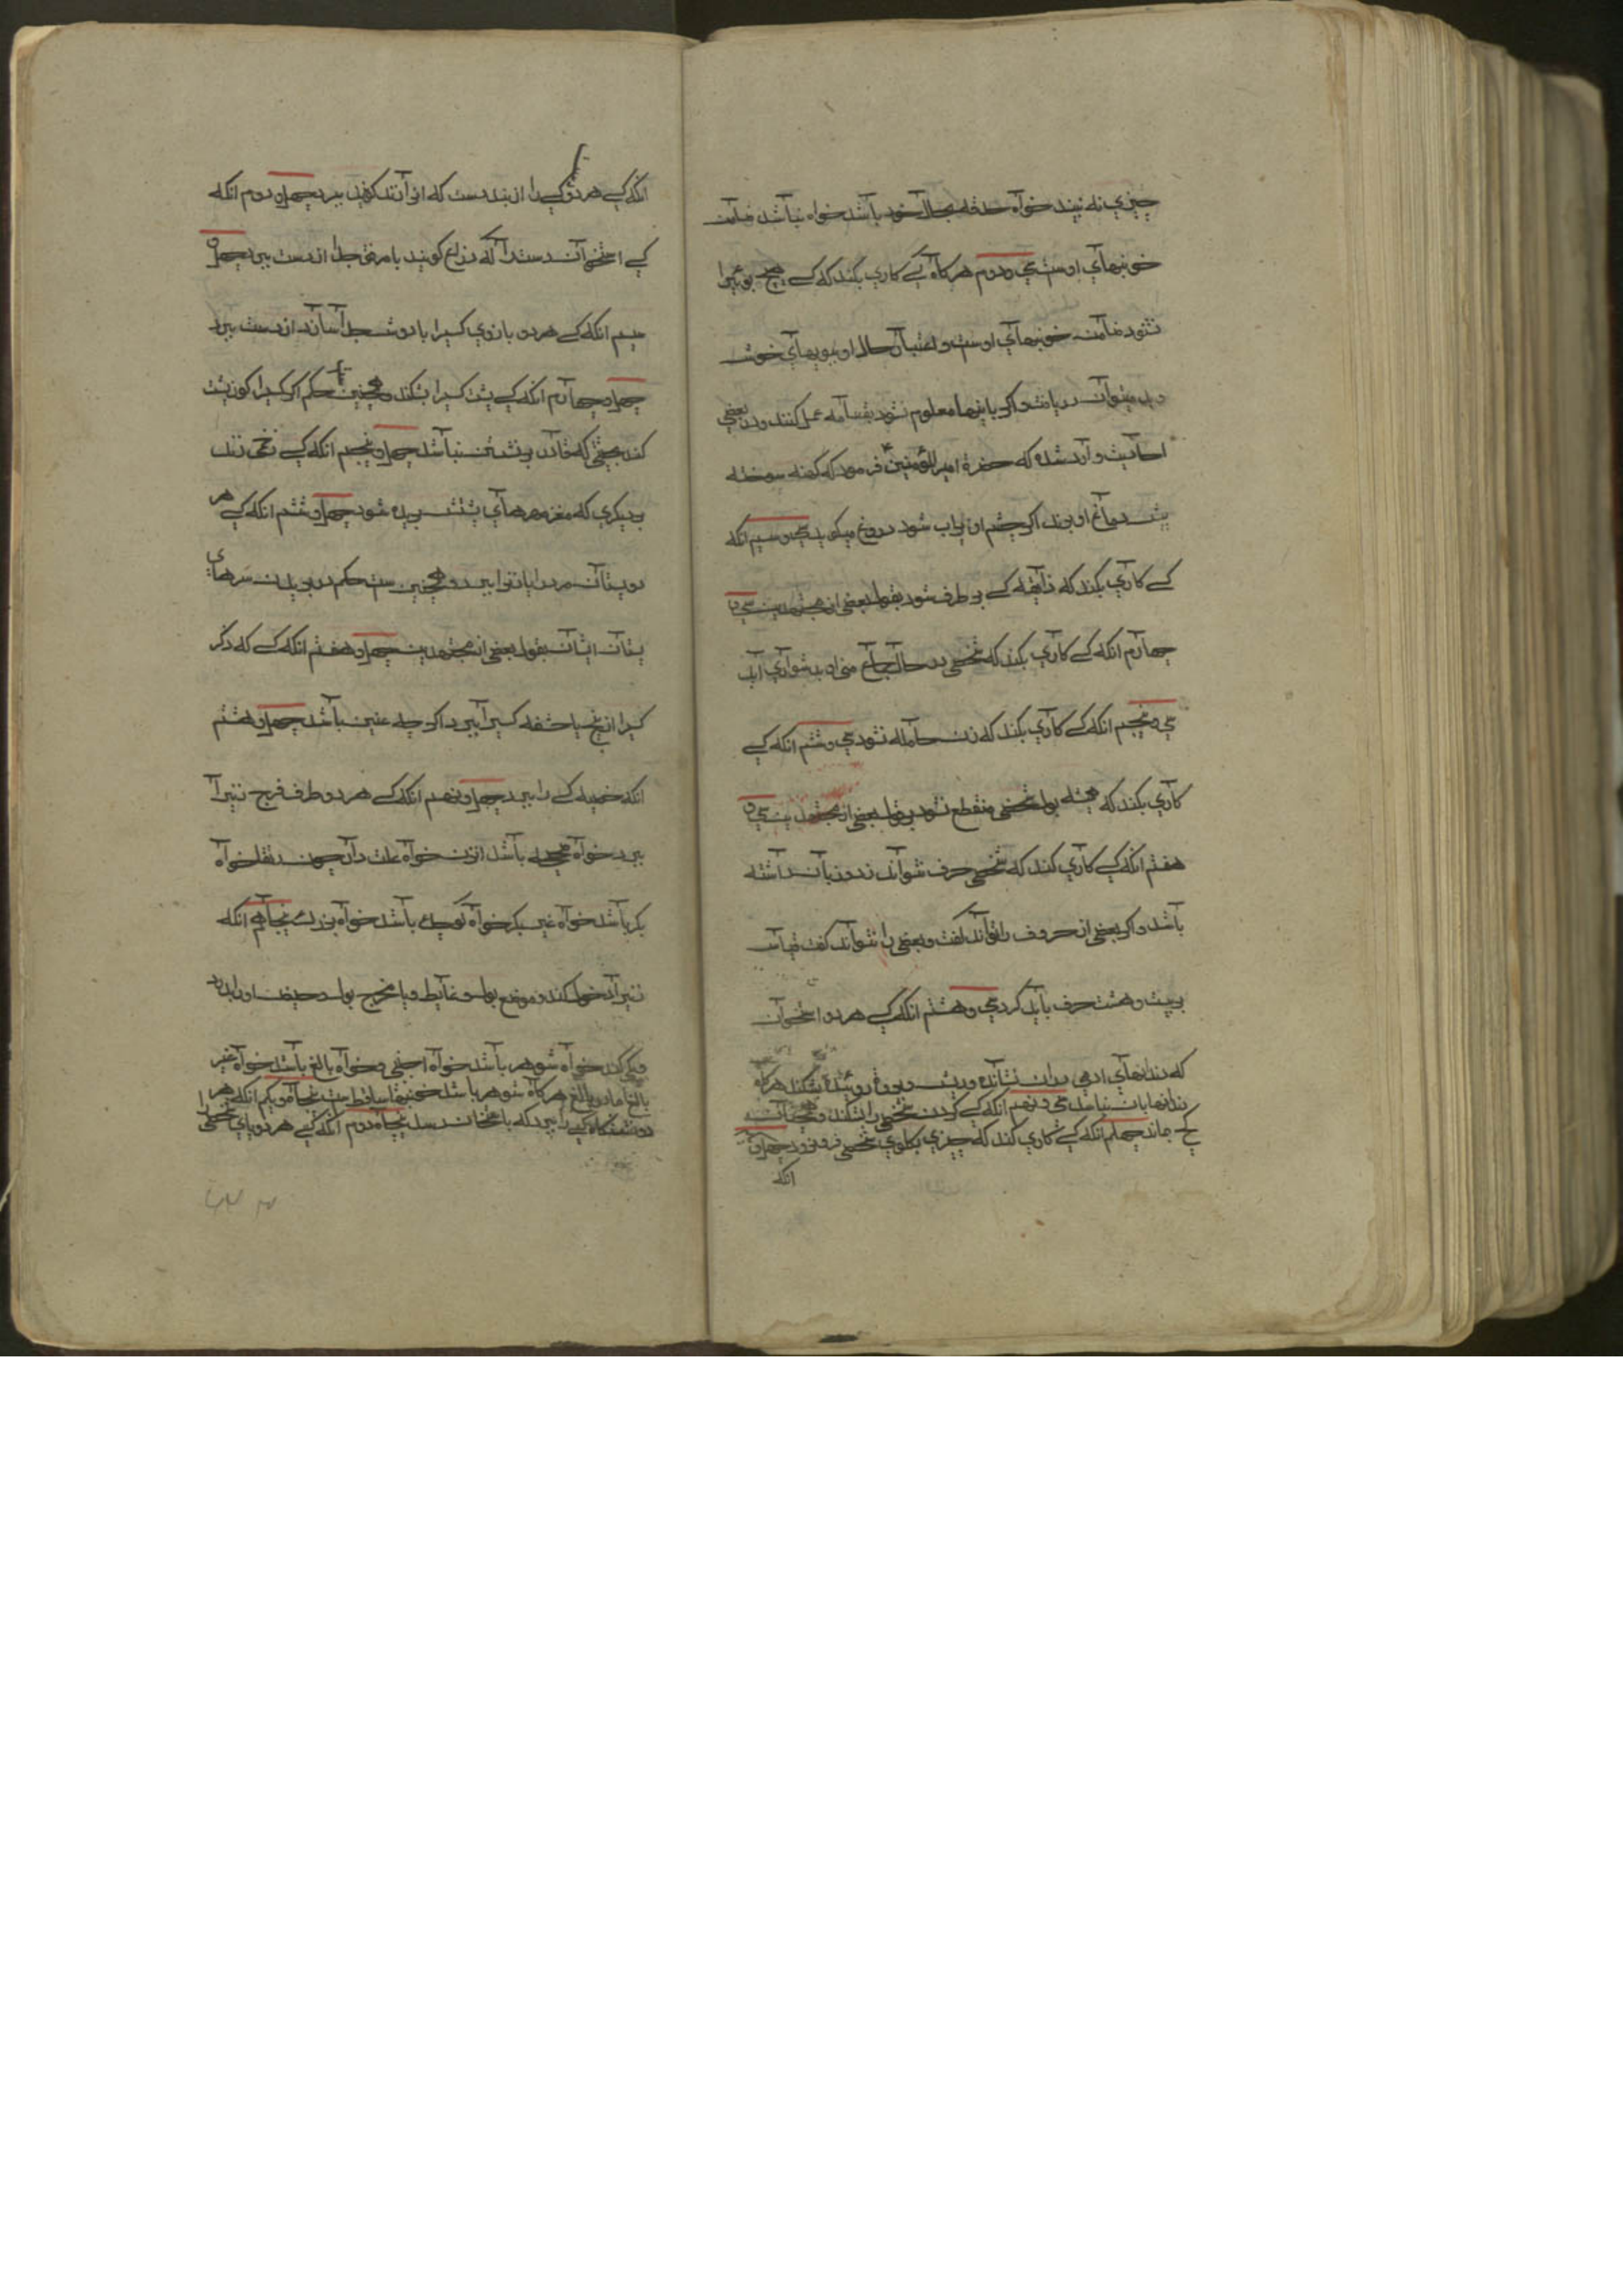 چیزی نه بیند خواه حدقه بحال خود باشد خواه نباشد ضامن
خونبهای اوست سی و دوم هرگاه کسی کاری بکند که کسی هیچ بوئیرا
نشنود ضامن خونبهای اوست و اعتبار حال او ببویهای خوش
و بد میتوان دریافت و اگر باینها معلوم نشود بقسامه عمل کنند و در بعضی
احادیث وارد شده که حضرة امیر المؤمنین فرمود که کهنه سوخته
پیش دماغ او برند اگر چشم او پر آب شود دروغ میگوید سی و سیم انکه
کسی کاری بکند که ذایقه کسی بر طرف شود بقول بعضی از مجتهدین سی و
چهارم انکه کسی کاری بکند که شخصی در حال جماع منی او بدشواری آید
سی و پنجم انکه کسی کاری بکند که زن حامله نشود سی و ششم انکه کسی
کاری بکند که همیشه بول شخصی منقطع نشود بر قول بعضی از مجتهدین سی و
هفتم انکه کسی کاری کند که شخصی حرف نتواند زد و زبان داشته
باشد و اگر بعضی از حروف را تواند گفت و بعضی را نتواند گفت قیاس
بر بیست و هشت حرف باید کرد سی و هشتم انکه کسی هر دو استخوان
که دندانهای ادمی بران نشانده و ریش بر او روئیده بشکند هرگاه
دندانها بان نباشد سی و نهم انکه کسی گردن شخصی را بشکند و همچنان
کج بماند چهلم انکه کسی کاری کند که چیزی بگلوی شخصی فرو نرود چهل و
انکه
انکه کسی هر دو کسی را از بند دست که انرا زند گویند ببرد چهل و دوم انکه
کسی استخوان دست را که ذراع گویند با مرفق جدا از دست ببرد چهل و
سیم انکه کسی هر دو بازوی کسیرا با دوش جدا سازد از دست ببرد
چهل و چهارم انکه کسی پشت کسیرا بشکند و همچنین حکم اگر کسیرا کوزپشت
کند بحیثی که قادر بر نشستن نباشد چهل و پنجم انکه کسی زخمی زند
بدیگری که مغز مهرهای پشتش بریده شود چهل و ششم انکه کسی هر
دو پستان مرد را یا زنرا ببرد و همچنین ست حکم در بریدن سرهای
پستان ایشان بقول بعضی از مجتهدین چهل و هفتم انکه کسی که ذکر
کسیرا از بیخ یا حشفه کسیرا ببرد اگر چه عنین باشد چهل و هشتم
انکه خصیه کسی را ببرد چهل و نهم انکه کسی هر دو طرف فرج زنیرا
ببرد خواه صحیح باشد ان زن خواه علت دار چون رتقا خواه
بکر باشد خواه غیر بکر خواه کوچک باشد خواه بزرگ پنجاهم انکه
زنیرا دخول کند و موضع بول و غایط و یا مخرج بول و حیض او را بدرد
و یکی کند خواه شوهر باشد خواه اجنبی و خواه بالغ باشد خواه غیر
بالغ اما در بالغ هرگاه شوهر باشد خونبها ساقط است پنجاه و یکم انکه هر
دو نشستگاه کسی را ببرد که باستخوان رسد پنجاه و دوم انکه کسی هر دو پای شخصی را